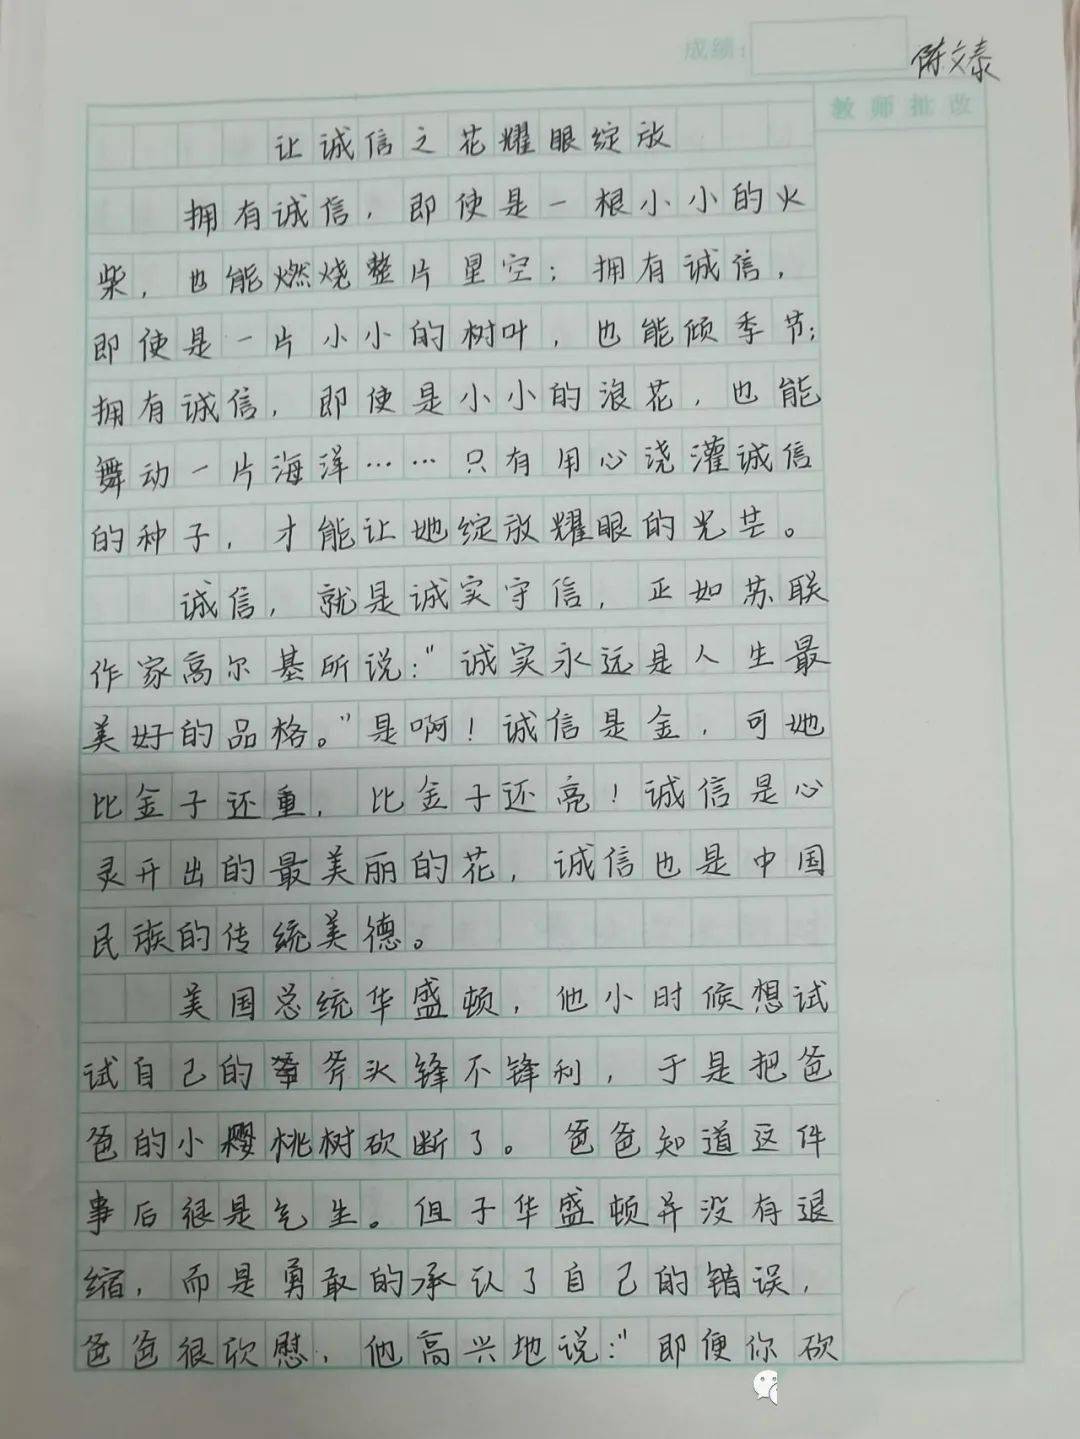 成绩：
陈文泰
教师批改
让诚信之花耀眼绽放
拥有诚信，即使是一根小小的火
柴，也能燃烧整片星空；拥有诚信，
即使是一片小小的树叶，也能倾季节；
拥有诚信，即使是小小的浪花，也能
舞动一片海洋……只有用心浇灌诚信
的种子，才能让她绽放耀眼的光芒。
诚信，就是诚实守信，正如苏联
作家高尔基所说：“诚实永远是人生最
美好的品格。”是啊！诚信是金，可她
比金子还重，比金子还亮！诚信是心
灵开出的最美丽的花，诚信也是中国
民族的传统美德。
美国总统华盛顿，他小时候想试
试自己的斧头锋不锋利，于是把爸
爸的小樱桃树砍断了。爸爸知道这件
事后很是气生。但子华盛顿并没有退
缩，而是勇敢的承认了自己的错误，
爸爸很欣慰，他高兴地说：“即便你砍